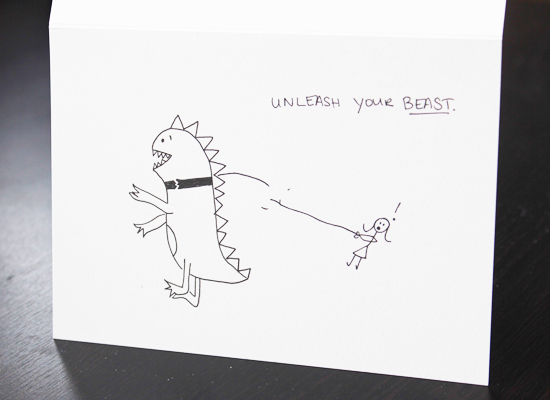 UNLEASH YOUR BEAST.
!